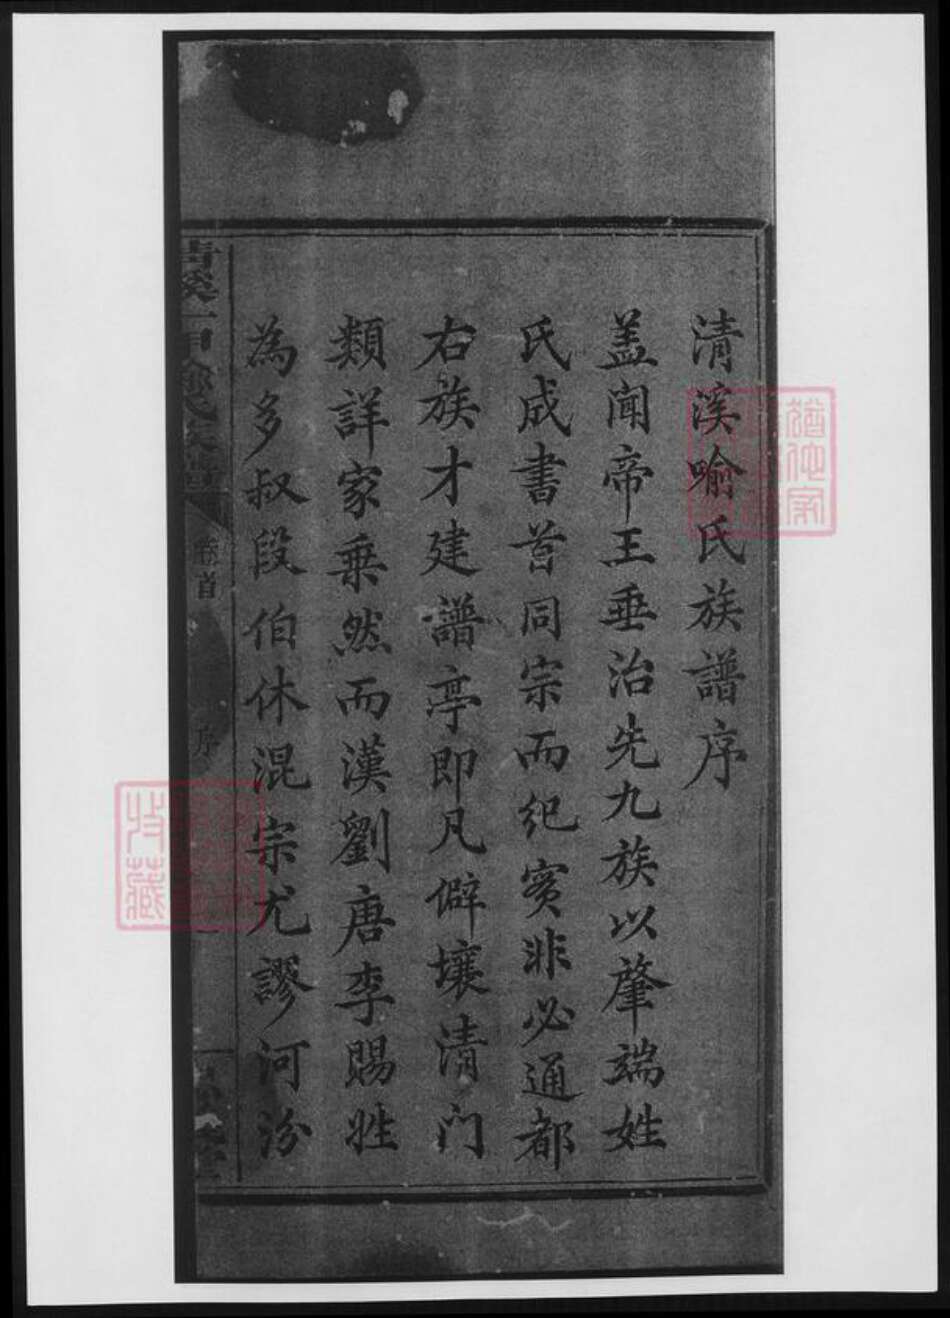 清溪喻氏族譜序
盖闻帝王垂治先九族以肇端姓
氏成書首同宗而紀實非必通都
右族才建譜亭即凡僻壤清门
類詳家乗然而漢劉唐李賜姓
為多叔段伯休混宗尤謬河汾
卷首
序